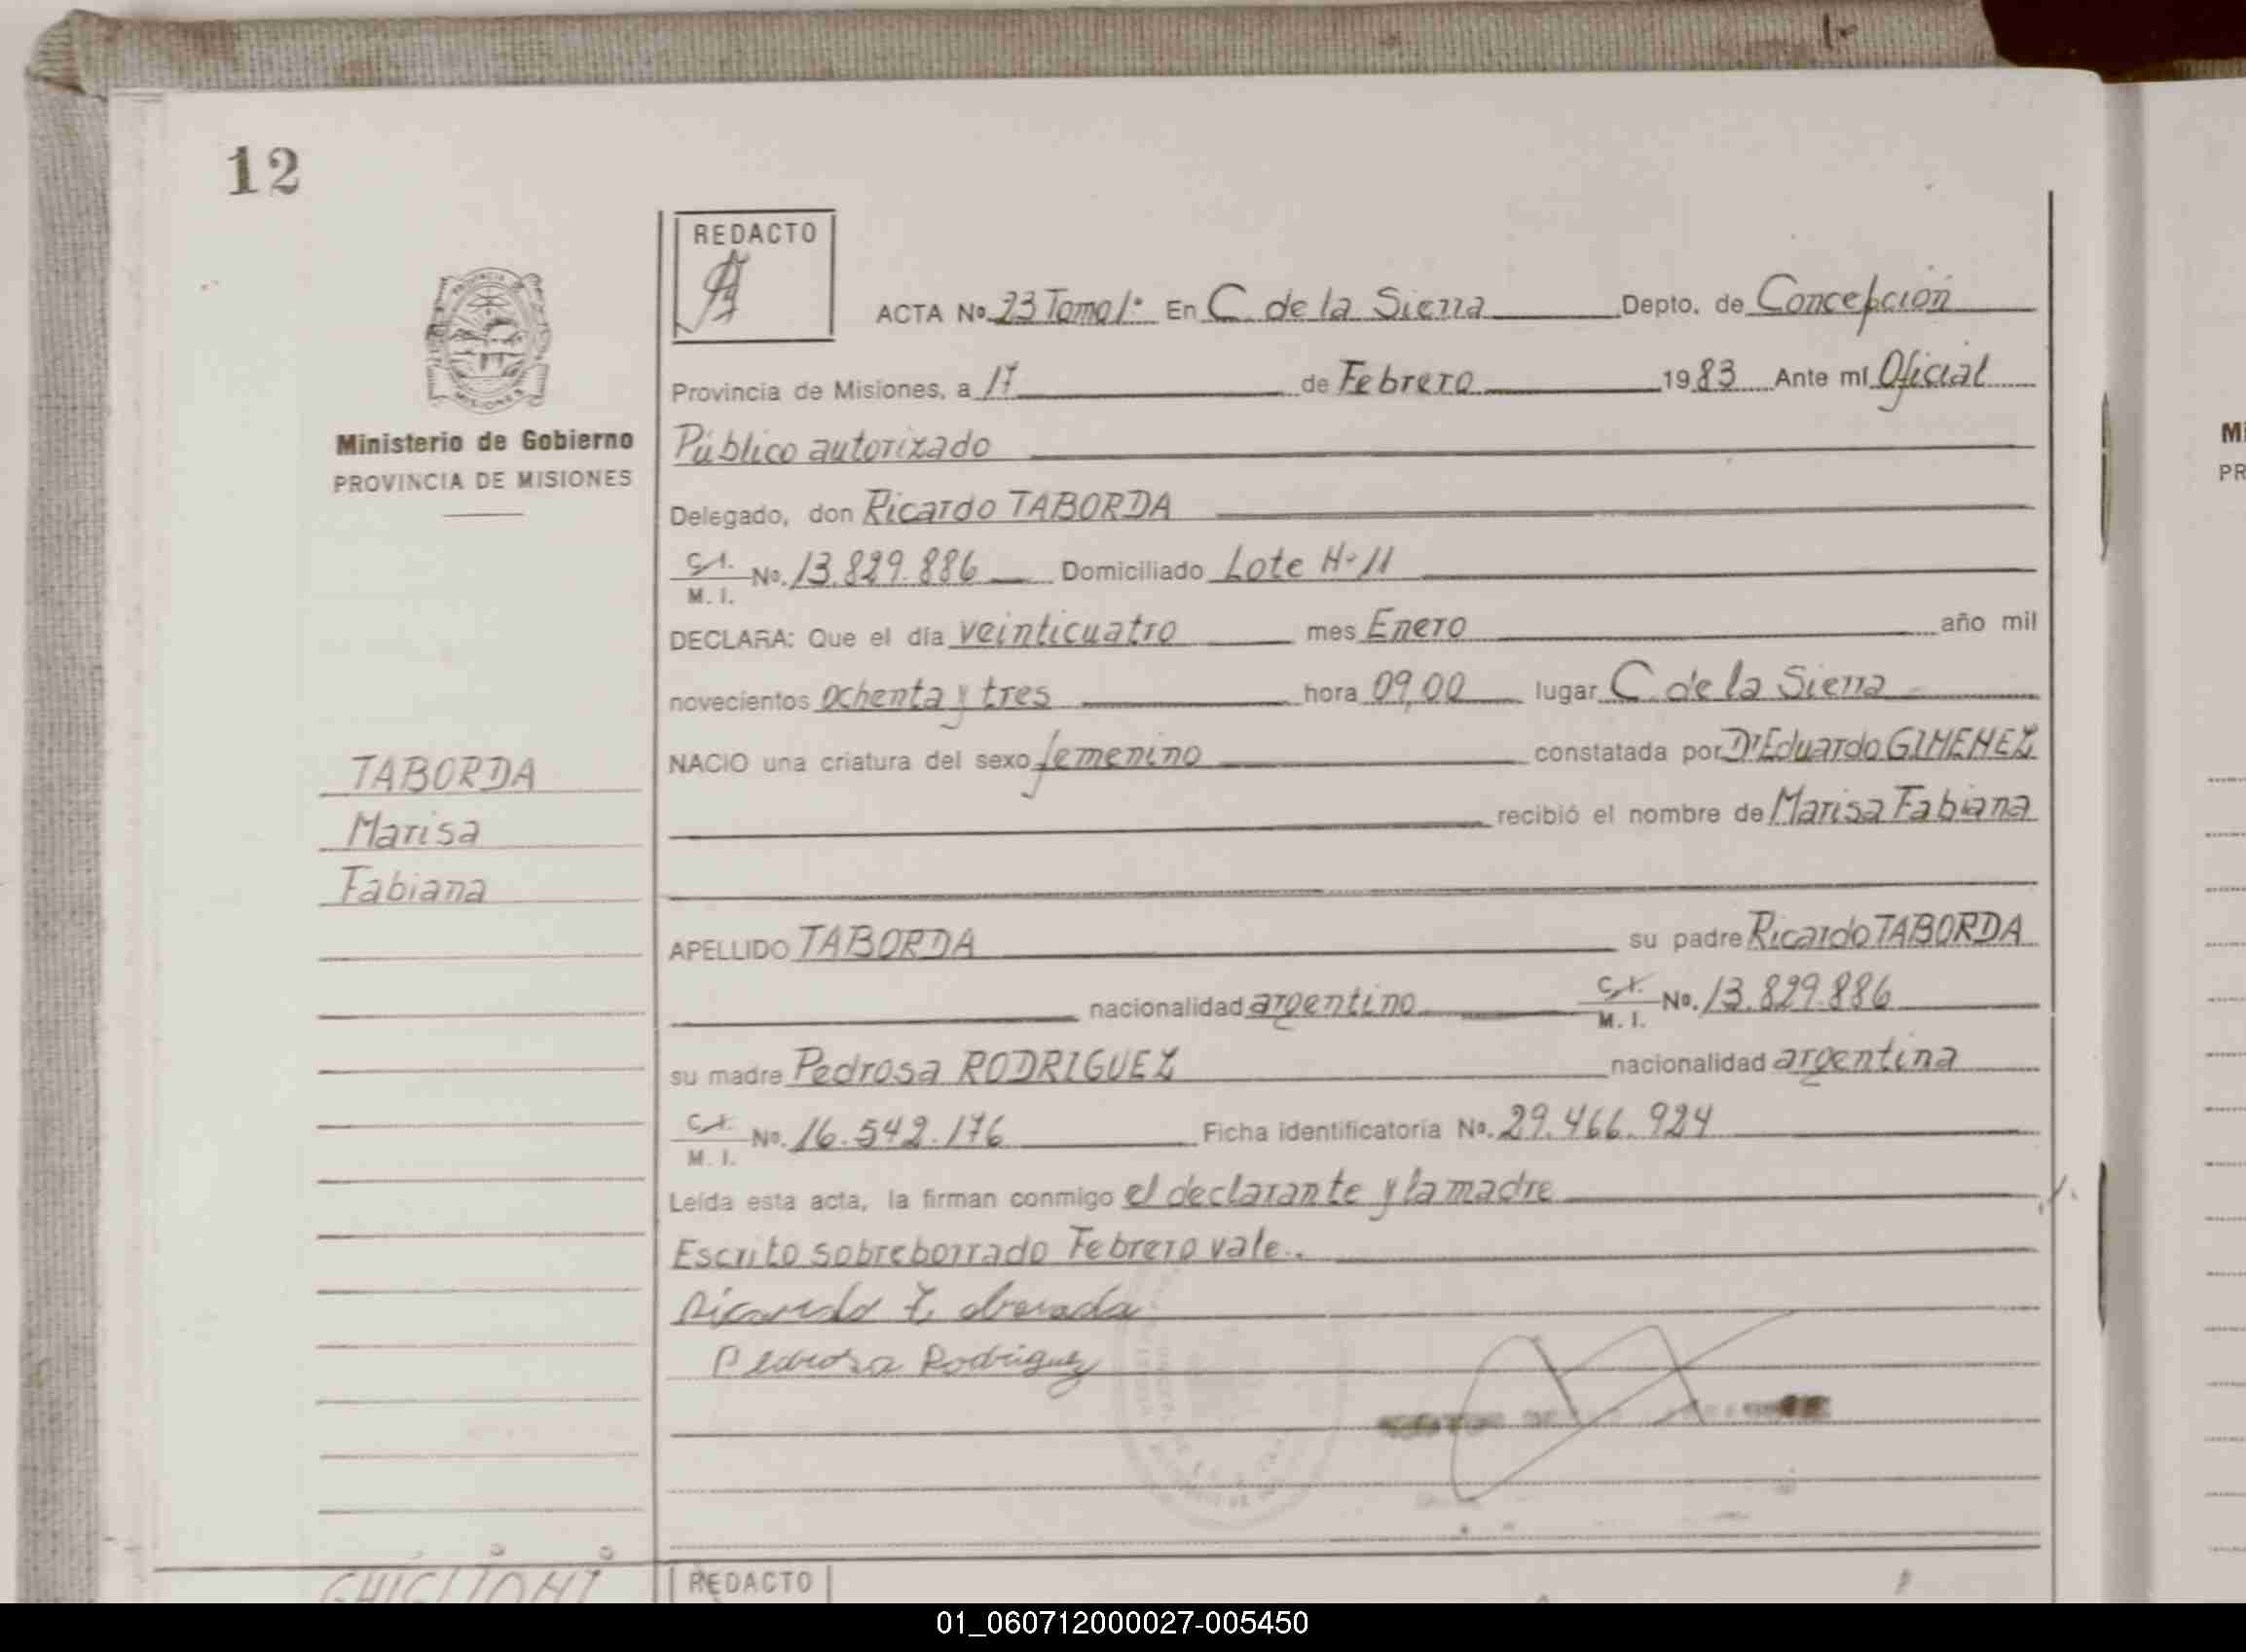 12
REDACTO
ACTA Nº 23 Tomo 1º En C. de la Sierra Depto. de Concepción
Provincia de Misiones, a 17 de Febrero 1983 Ante mí Oficial
Ministerio de Gobierno
PROVINCIA DE MISIONES
Público autorizado
Delegado, don Ricardo TABORDA
C.I. M. I. Nº. 13.829.886 Domiciliado Lote H-11
DECLARA: Que el día veinticuatro mes Enero año mil
novecientos ochenta y tres hora 09,00 lugar C. de la Sierra
NACIO una criatura del sexo femenino constatada por Dr Eduardo GIMENEZ
recibió el nombre de Marisa Fabiana
TABORDA
Marisa
Fabiana
APELLIDO TABORDA su padre Ricardo TABORDA
nacionalidad argentino C.I. M. I. Nº. 13.829.886
su madre Pedrosa RODRIGUEZ nacionalidad argentina
C.I. M. I. Nº. 16.542.176 Ficha identificatoria Nº. 29.466.924
Leída esta acta, la firman conmigo el declarante y la madre
Escrito sobreborrado Febrero vale.
Ricardo Taborda
Pedrosa Rodriguez
REDACTO
M
PR
01_060712000027-005450